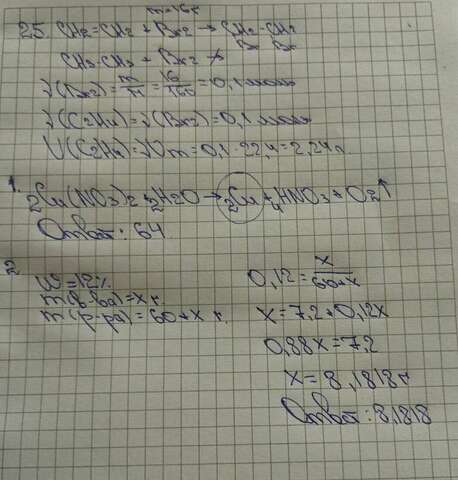 m=16г
25. CH2=CH2 + Br2 → CH2-CH2
Br Br
CH3-CH3 + Br2 ↛
ν(Br2) = m/M = 16/160 = 0,1 моль
ν(C2H4) = ν(Br2) = 0,1 моль
V(C2H4) = νVm = 0,1 · 22,4 = 2,24 л
1.
2Cu(NO3)2 + 2H2O → 2Cu + 4HNO3 + O2↑
Ответ: 64
2
W = 12%
m(в-ва) = x г.
m(р-ра) = 60 + x г.
0,12 = x/60+x
x = 7,2 + 0,12x
0,88x = 7,2
x = 8,1818 г
Ответ: 8,1818